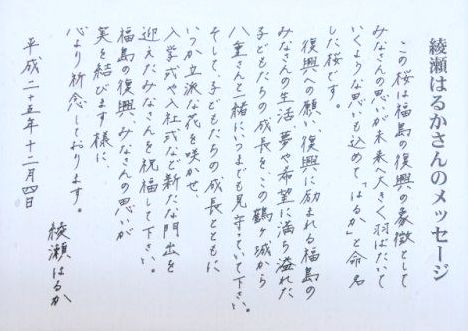 綾瀬はるかさんのメッセージ
この桜は福島の復興の象徴として
みなさんの思いが未来へ大きく羽ばたいて
いくような思いも込めて「はるか」と命名
した桜です。
復興への願い、復興に励まれる福島の
みなさんの生活、夢や希望に満ち溢れた
子どもたちの成長を、この鶴ヶ城から
八重さんと一緒にいつまでも見守っていて下さい。
そして、子どもたちの成長とともに
いつか立派な花を咲かせ、
入学式や入社式など新たな門出を
迎えたみなさんを祝福して下さい。
福島の復興、みなさんの思いが
実を結びます様に
心より祈念しております。
平成二十五年十二月四日
綾瀬はるか